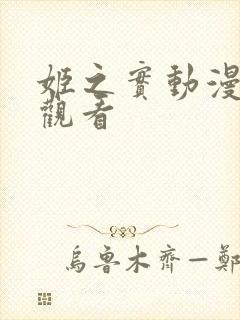 姬之實動漫
觀看
烏魯木齊—鄭